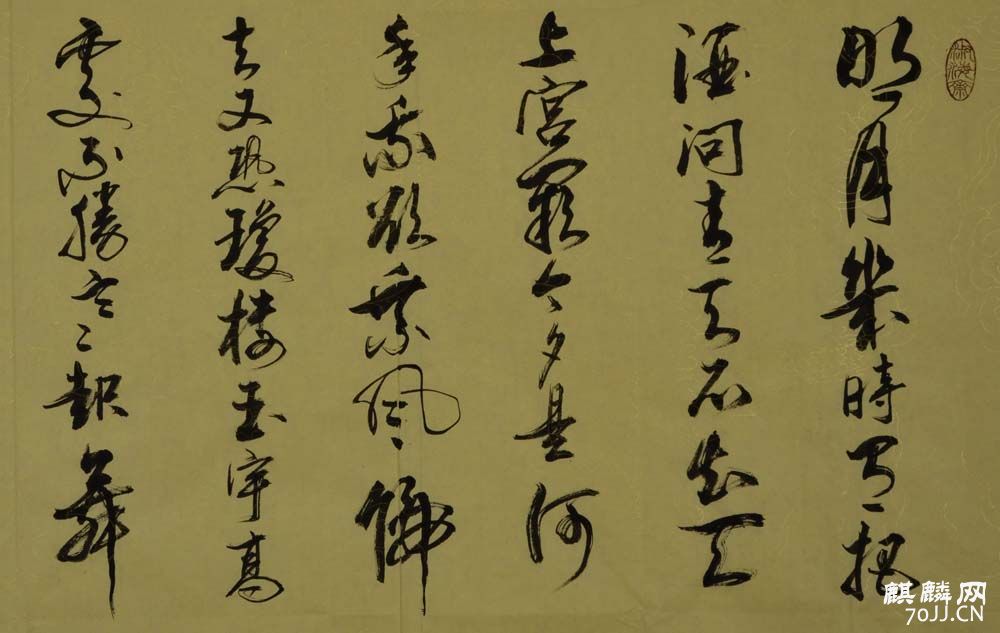 明月幾時有把
酒問青天不知天
上宮闕今夕是何
年我欲乘風歸
去又恐瓊樓玉宇高
處不勝寒起舞
麒麟网
70JJ.CN